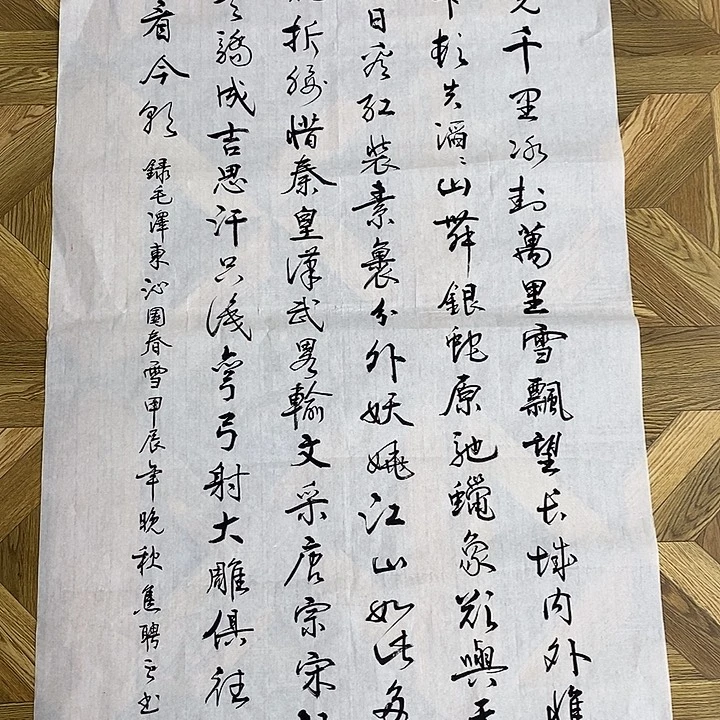 千里冰封萬里雪飄望长城内外惟
下頓失滔〻山舞銀蛇原馳蠟象欲與天
日看紅裝素裹分外妖嬈江山如此多
折腰惜秦皇漢武畧輸文采唐宗宋
驕成吉思汗只識彎弓射大雕俱往
看今朝
録毛澤東沁園春雪甲辰年晚秋焦聘之书